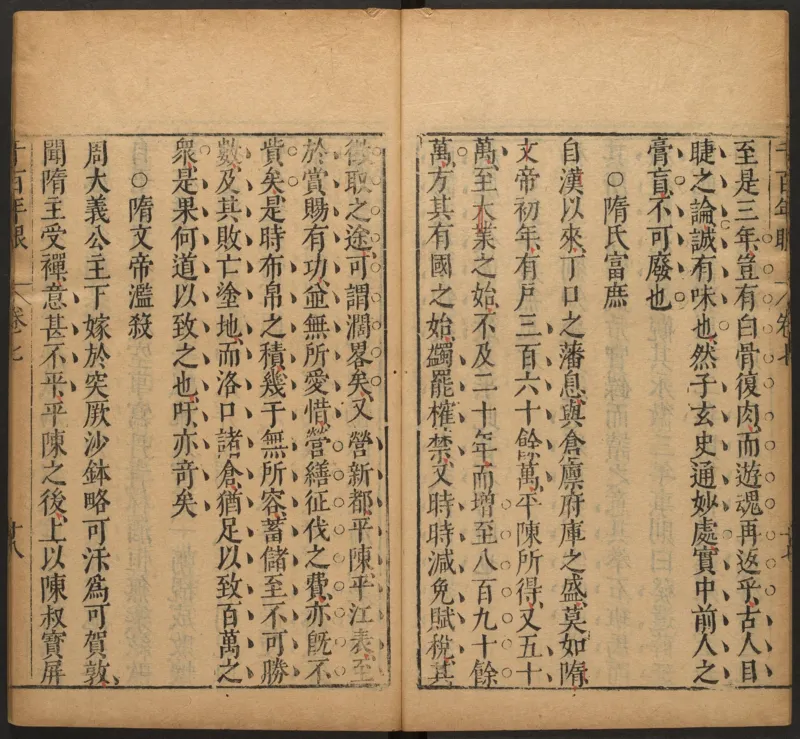 至是三年豈有白骨復肉而遊魂再返乎古人目
睫之論誠有味也然子玄史通妙處實中前人之
膏盲不可廢也
○隋氏富庶
自漢以來丁口之藩息與倉廩府庫之盛莫如隋
文帝初年有戶三百六十餘萬平陳所得又五十
萬至大業之始不及二十年而增至八百九十餘
萬方其有國之始蠲罷榷禁又時時減免賦稅其
徵取之途可謂濶畧矣又營新都平陳平江表至
於賞賜有功並無所愛惜營繕征伐之費亦旣不
貲矣是時布帛之積幾于無所容蓄儲至不可勝
數及其敗亡塗地而洛口諸倉猶足以致百萬之
衆是果何道以致之也吁亦奇矣
○隋文帝濫殺
周大義公主下嫁於突厥沙鉢略可汗為可賀敦
聞隋主受禪意甚不平平陳之後上以陳叔寶屏
千百年眼 卷七 廿八